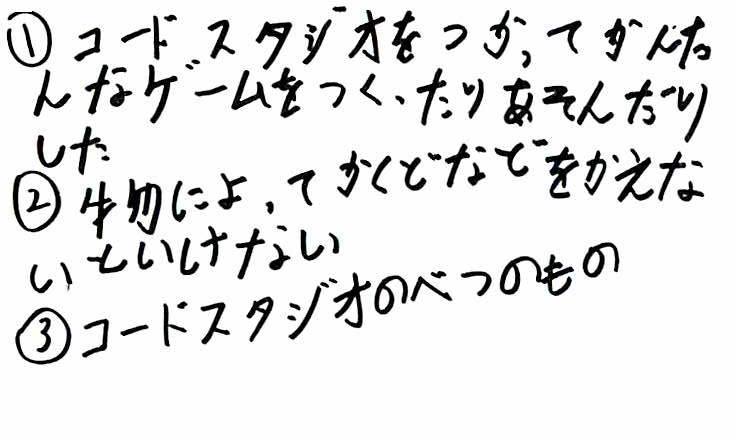 ① コードスタジオをつかってかんた
んなゲームをつくったりあそんだり
した
② 物によってかくどなどをかえな
いといけない
③ コードスタジオのべつのもの